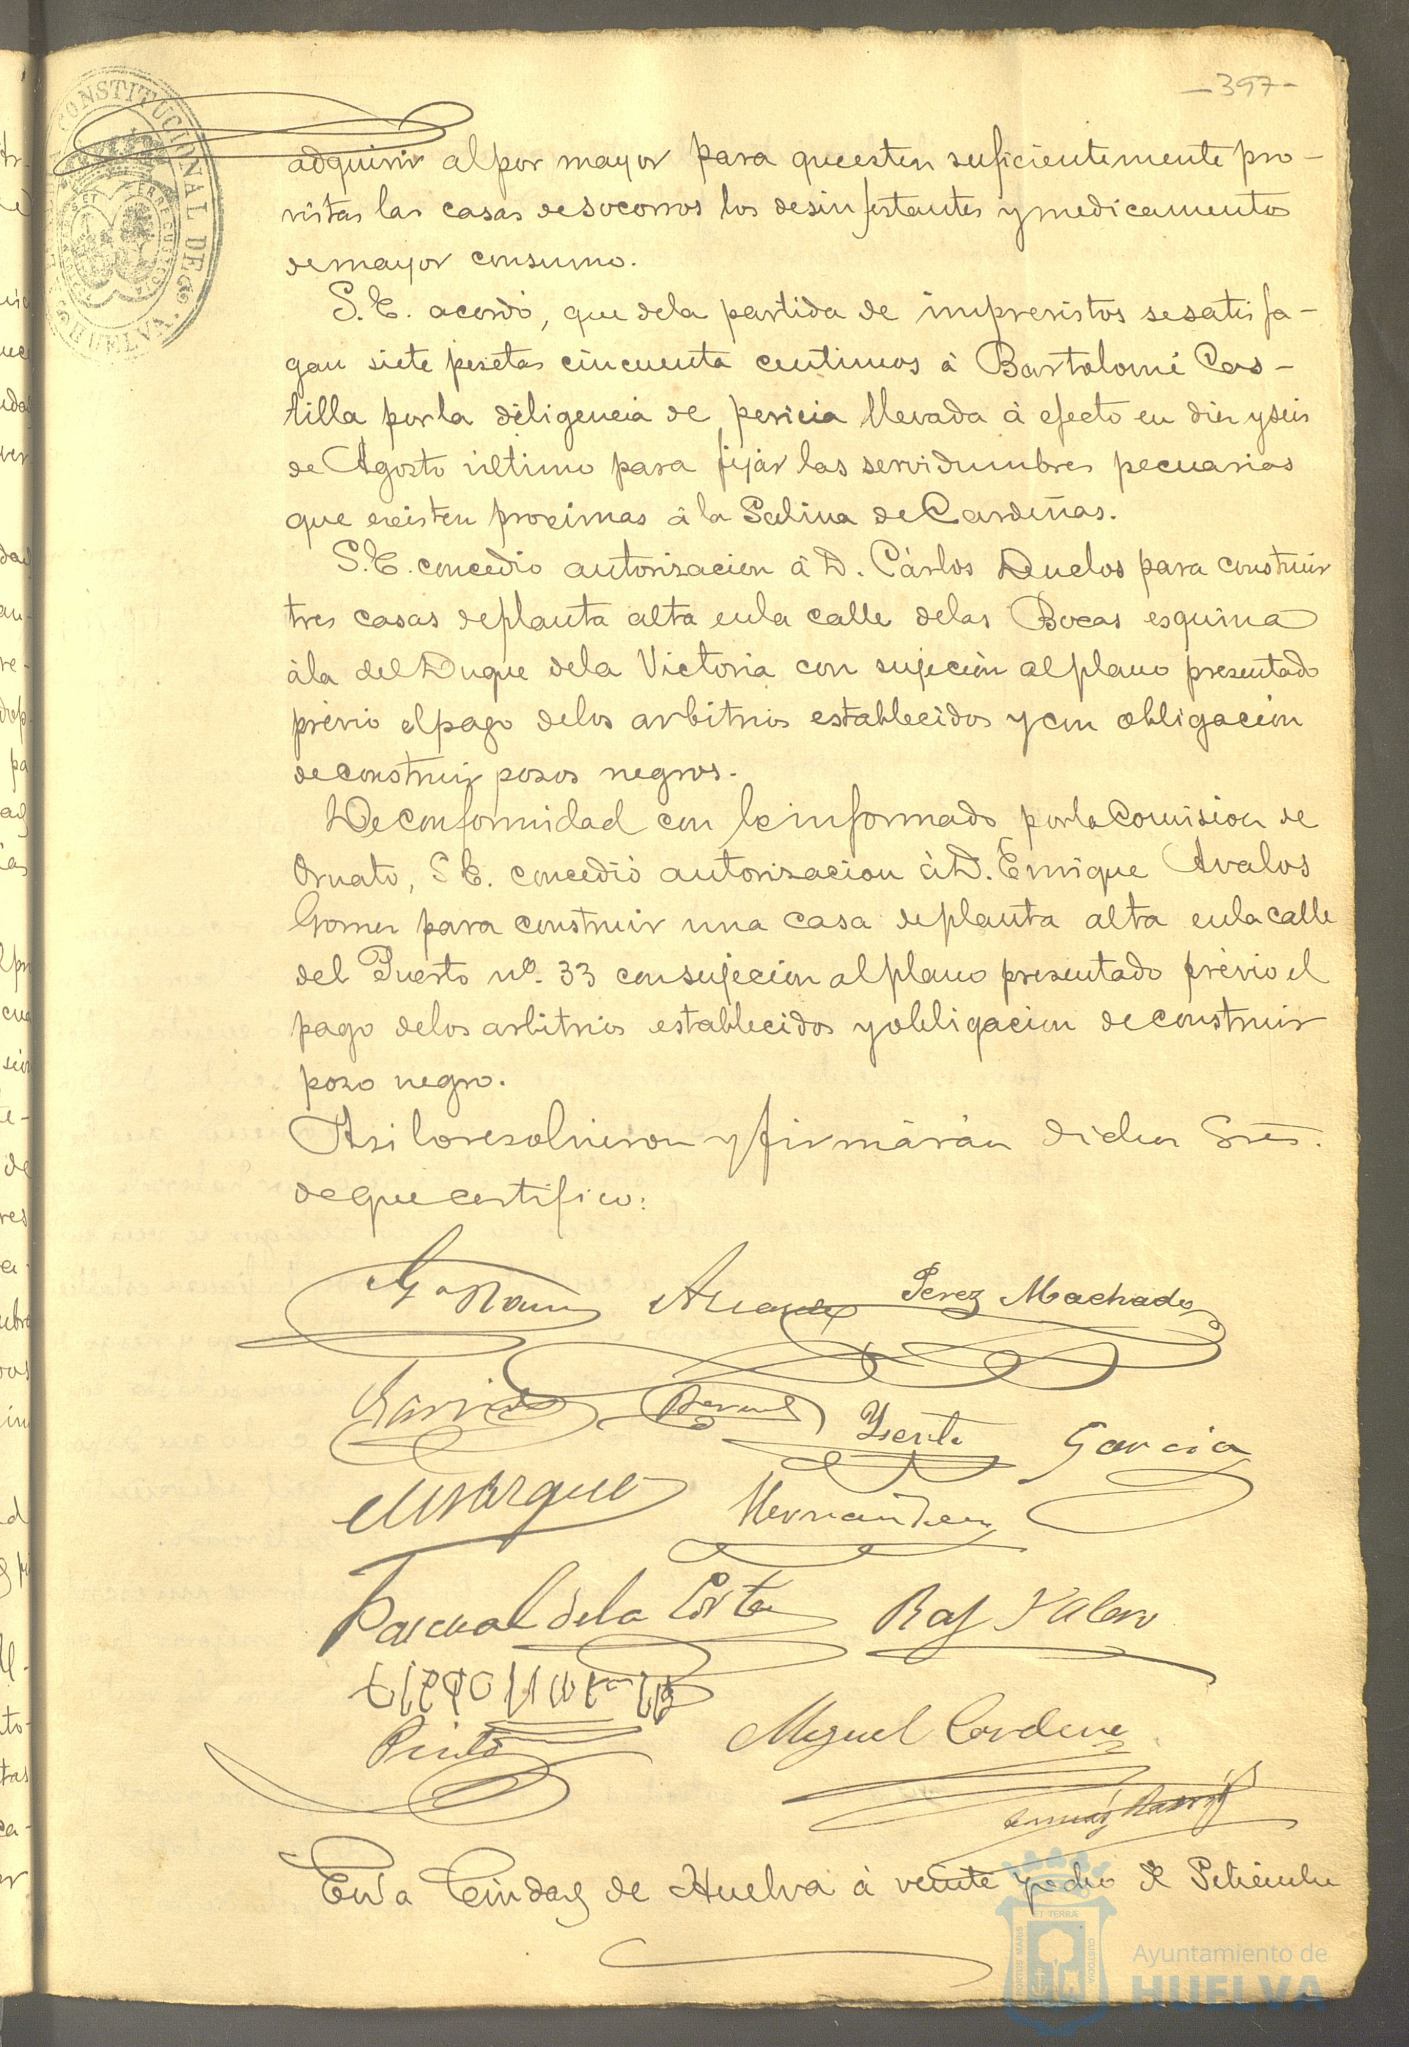 -397-
CONSTITUCIONAL DE
HUELVA
adquirir al por mayor para que esten suficientemente pro-
vistas las casas de socorros los desinfectantes y medicamentos
de mayor consumo.
S.E. acordó, que de la partida de imprevistos se satisfa-
gan siete pesetas cincuenta centimos á Bartolomé Cas-
tilla por la diligencia de pericia llevada á efecto en diez y seis
de Agosto último para fijar las servidumbres pecuarias
que existen proximas á la Salina de Cardeñas.
S.E. concedió autorizacion á D. Cárlos Duclos para construir
tres casas de planta alta en la calle de las Bocas esquina
á la del Duque de la Victoria con sujeción al plano presentado
prévio el pago de los arbitrios establecidos y con obligación
de construir pozos negros.
De conformidad con lo informado por la Comision de
Ornato, S.E. concedió autorizacion á D. Enrique Avalos
Gomez para construir una casa de planta alta en la calle
del Puerto nº. 33 con sujecion al plano presentado prévio el
pago de los arbitrios establecidos y obligacion de construir
pozo negro.
Asi lo resolvieron y firmarán dichos Sres.
de que certifico:
Perez Machado
Garrido
Garcia
Marquez
Hernandez
Pascual de la Corta
Pinto
Miguel Cordero
En la Ciudad de Huelva á veinte y ocho de Setiembre
Ayuntamiento de
HUELVA